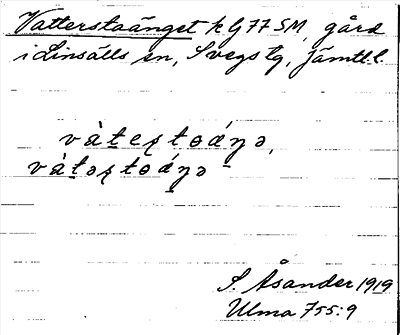 Vatterstaänget k G77SM, gård
i Linsälls sn, Svegs tg, Jämtl. l.
vàteʂtoáŋə,
vàtəʂtoáŋə
S. Åsander 1919
Ulma 755:9